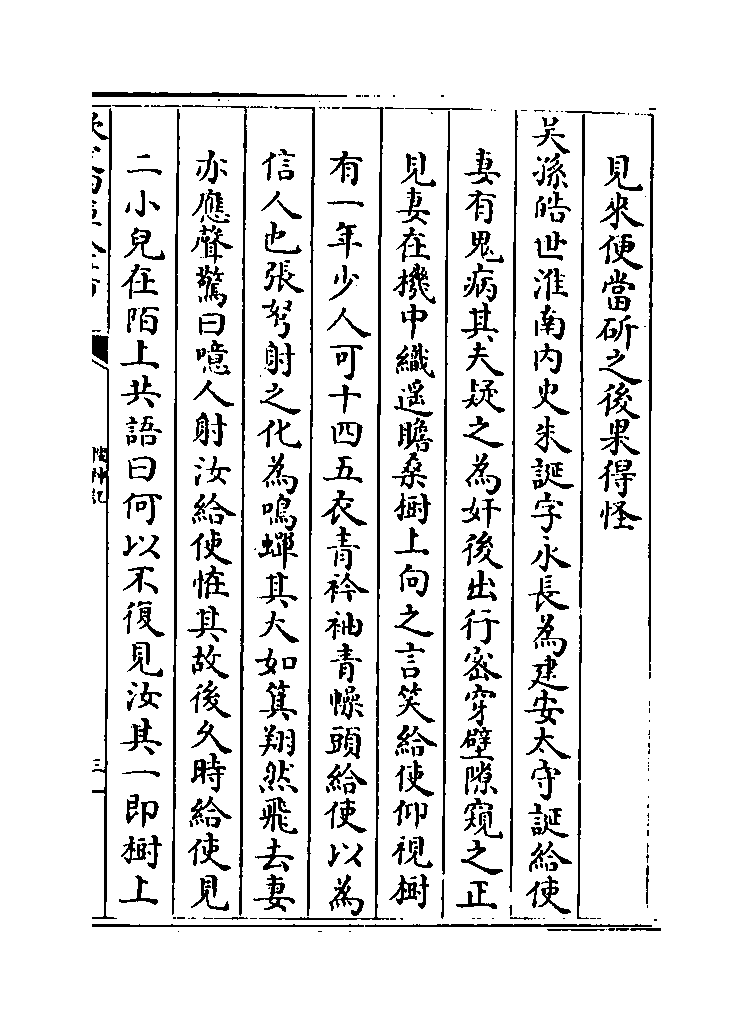 見來便當斫之後果得怪
吴孫皓世淮南内史朱誕字永長為建安太守誕給使
妻有鬼病其夫疑之為奸後出行宻穿壁隙窺之正
見妻在機中織遥瞻桑樹上向之言笑給使仰視樹
有一年少人可十四五衣青衿袖青幧頭給使以為
信人也張弩射之化為鳴蟬其大如箕翔然飛去妻
亦應聲驚曰噫人射汝給使怪其故後乆時給使見
二小兒在陌上共語曰何以不復見汝其一即樹上
搜神記
三